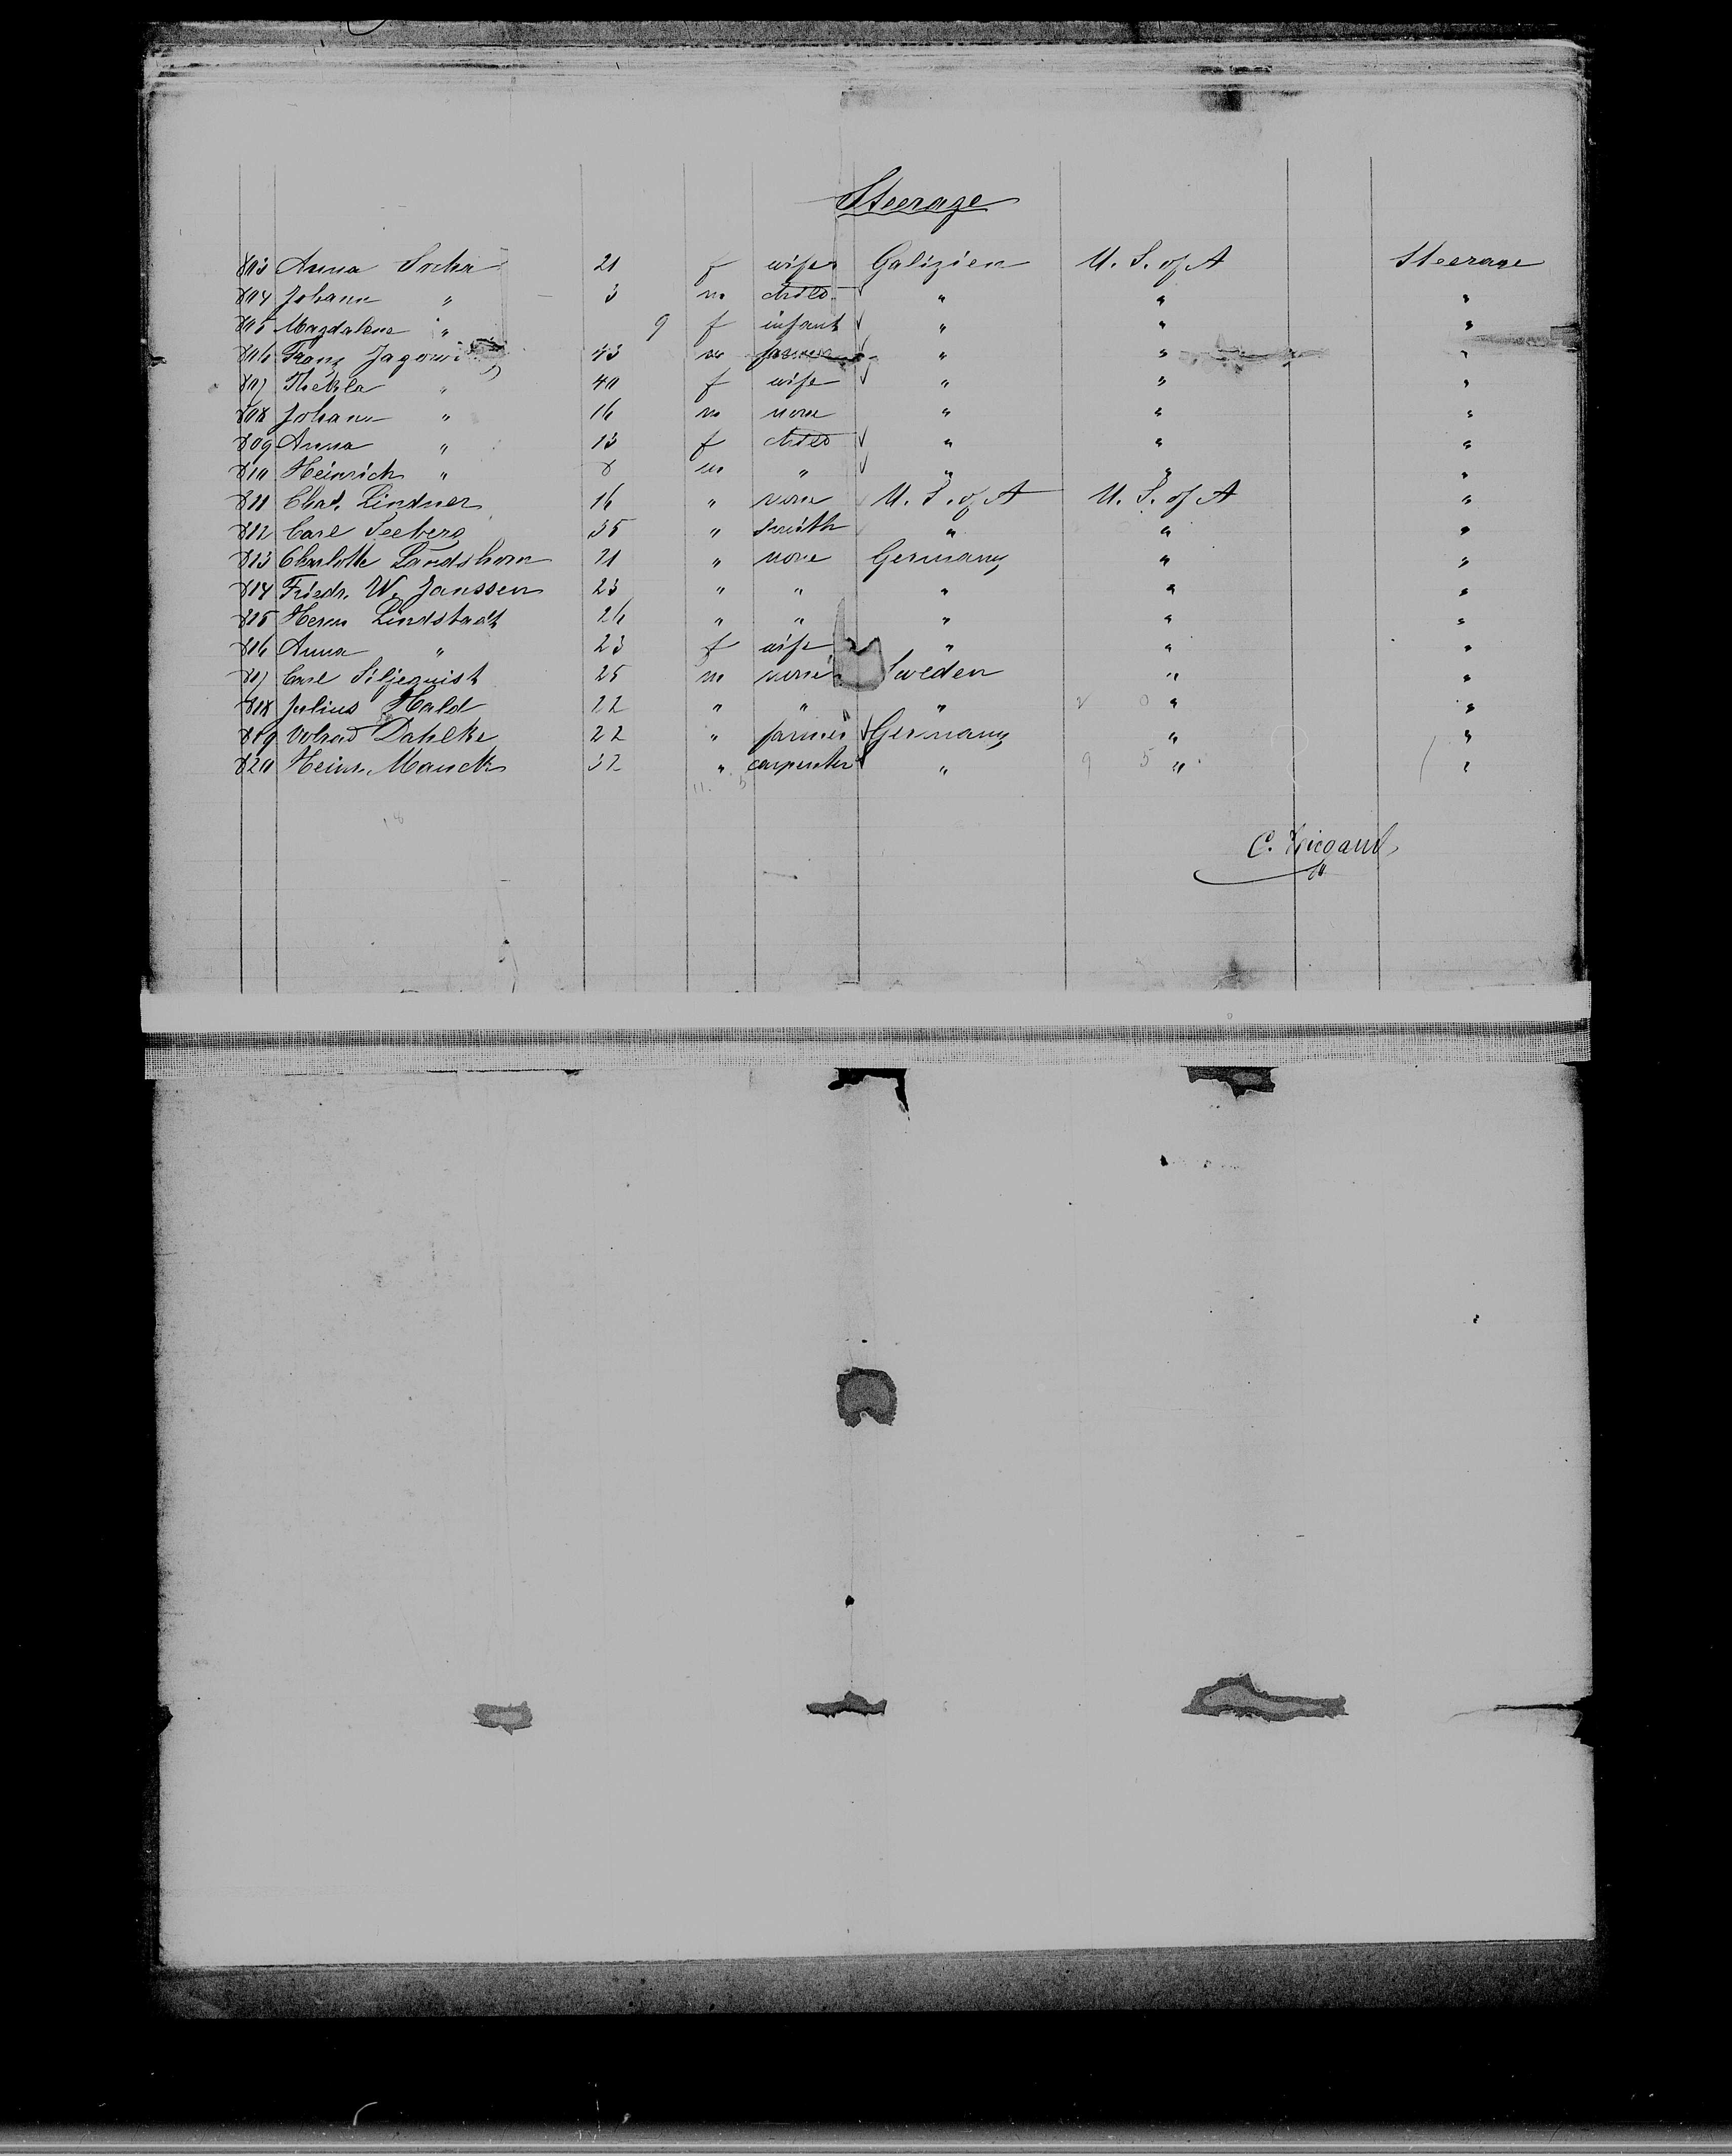 Steerage
803 Anna Socha 21 f wife Galizien U. S. of A Steerage
804 Johann " 3 m child " " "
805 Magdalena " 9 f infant " " "
806 Franz Jagowi 43 m farmer " " "
807 Thekla " 40 f wife " " "
808 Johann " 16 m none " " "
809 Anna " 13 f child " " "
810 Heinrich " 8 m " " " "
811 Chas. Lindner 16 " none U. S. of A U. S. of A "
812 Carl Seeberg 35 " smith " " "
813 Charlotte Landshorn 21 " none Germany " "
814 Friedr. W. Janssen 23 " " " " "
815 Herm Lindstadt 26 " " " " "
816 Anna " 23 f wife " " "
817 Carl Siljequist 25 m none Sweden " "
818 Julius Hald 22 " " " " "
819 Volrad Dahlke 22 " farmer Germany " "
820 Heinr. Mauck 32 " carpenter " " "
11. 5
18
C.